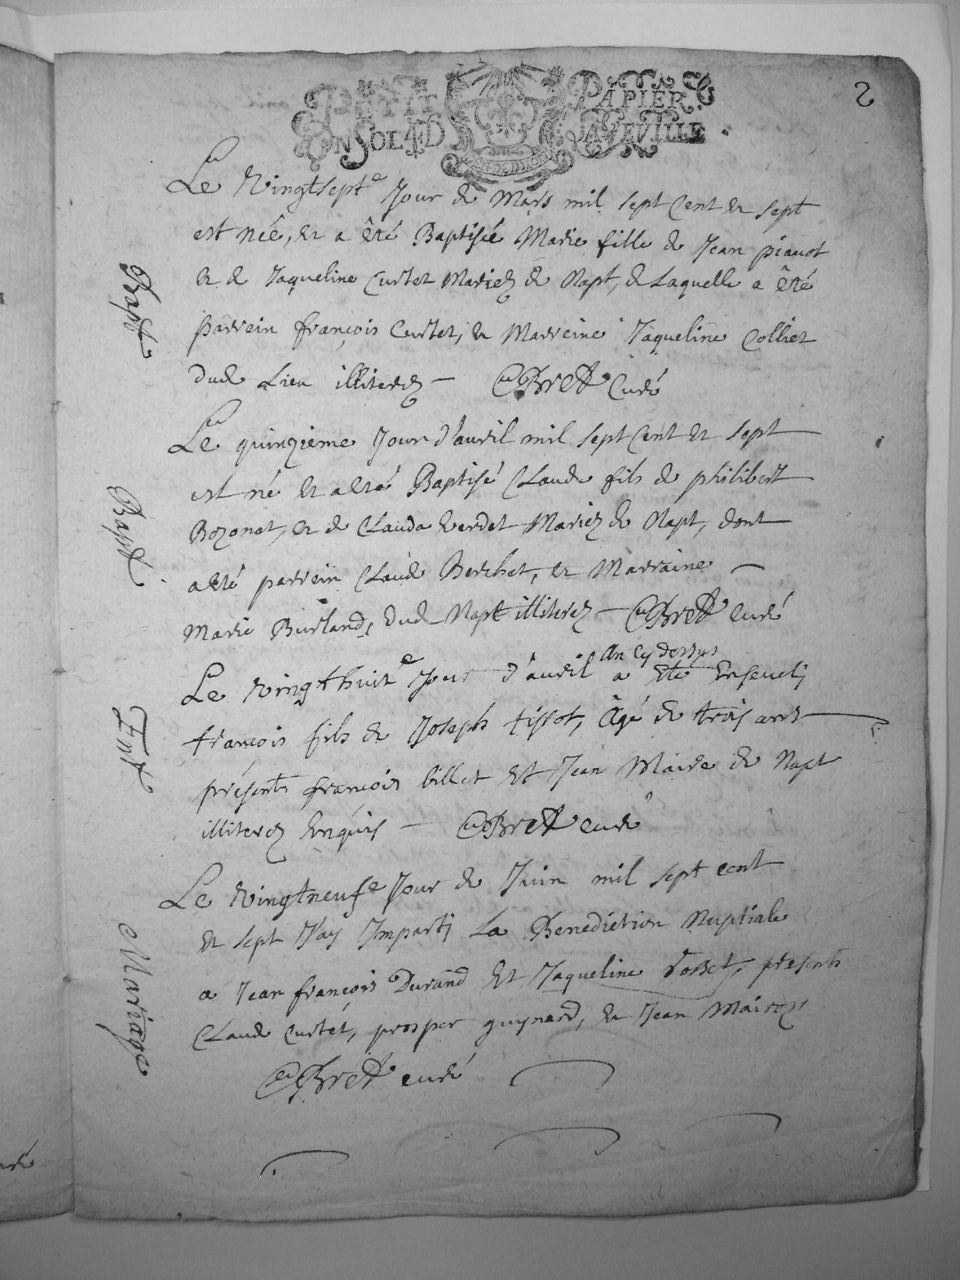 2
PETIT PAPIER
UN SOL 4D LA FEUILLE
Le vingtsept.e Jour de Mars mil sept Cent et sept
est née, et a été Baptisée Marie fille de Jean pianot
Bapt
et de Jaqueline Curtet Mariez de Napt, de Laquelle a été
parrein françois Curtet, et Marreine Jaqueline Colliet
dud Lieu illiterez — Curé
Le quinzieme Jour d'avril mil sept Cent et sept
est né et a été Baptisé Claude fils de philibert
Bapt
Bozonet, et de Clauda verdet Mariez de Napt, dont
a été parrein Claude Berchet, et Marraine —
Marie Burland, dud Napt illiterez — curé
Le vingthuit.e Jour d'avril an cy dessus a Eté Enseveli
Ent
françois fils de Joseph tissot, âgé de trois ans
présents françois billet et Jean Maire de Napt
illiterez Enquis — curé
Le vingtneuf.e Jour de Juin mil sept cent
et sept J'ay Imparti La Benediction Nuptiale
Mariage
a Jean françois Durand et Jaqueline rosset, presents
Claude Curtet, prosper guynard, et Jean Mairez
curé